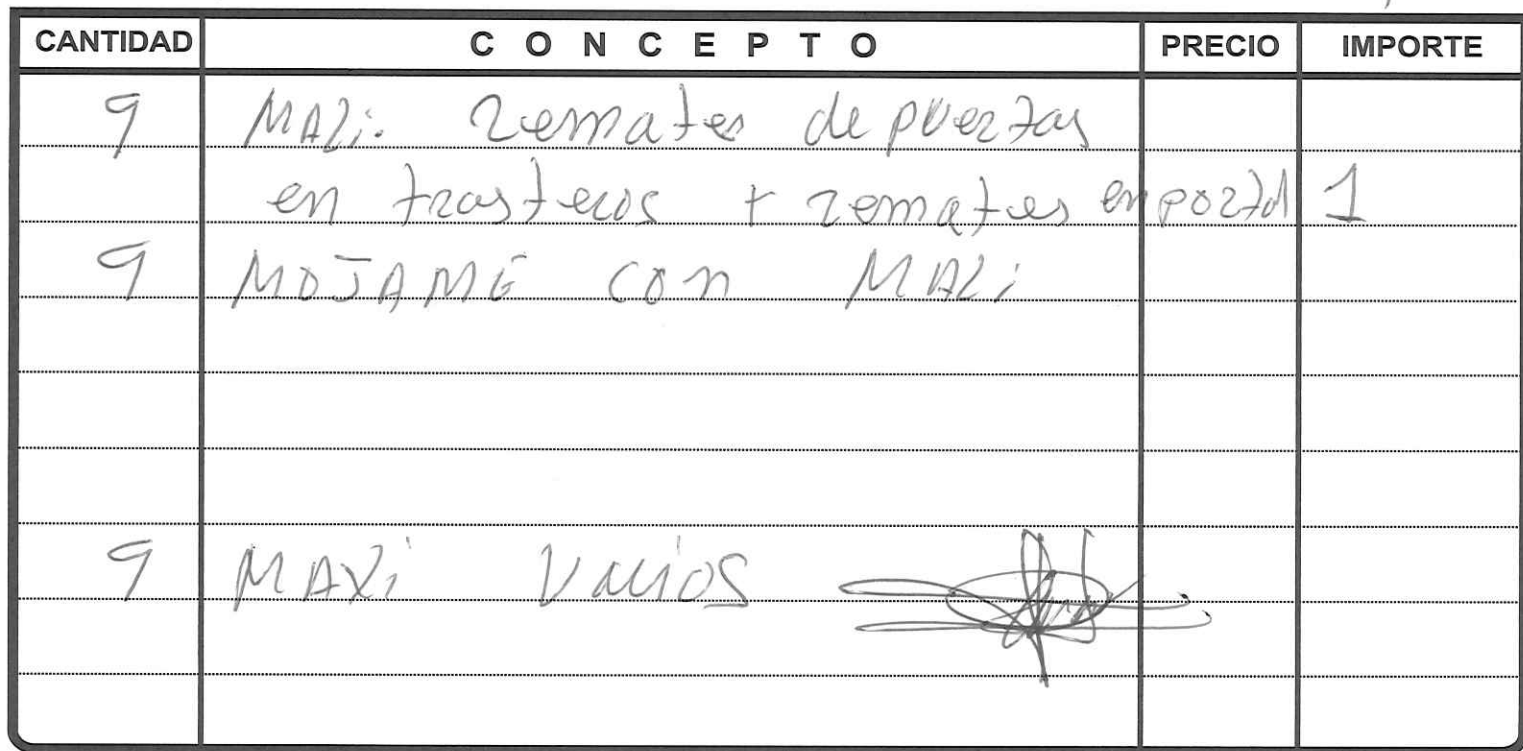 CANTIDAD CONCEPTO PRECIO IMPORTE
9 MAXi: Remates de puertas
en trasteros + remates en portal 1
9 MOJAME con MAXi
9 MAXi Varios